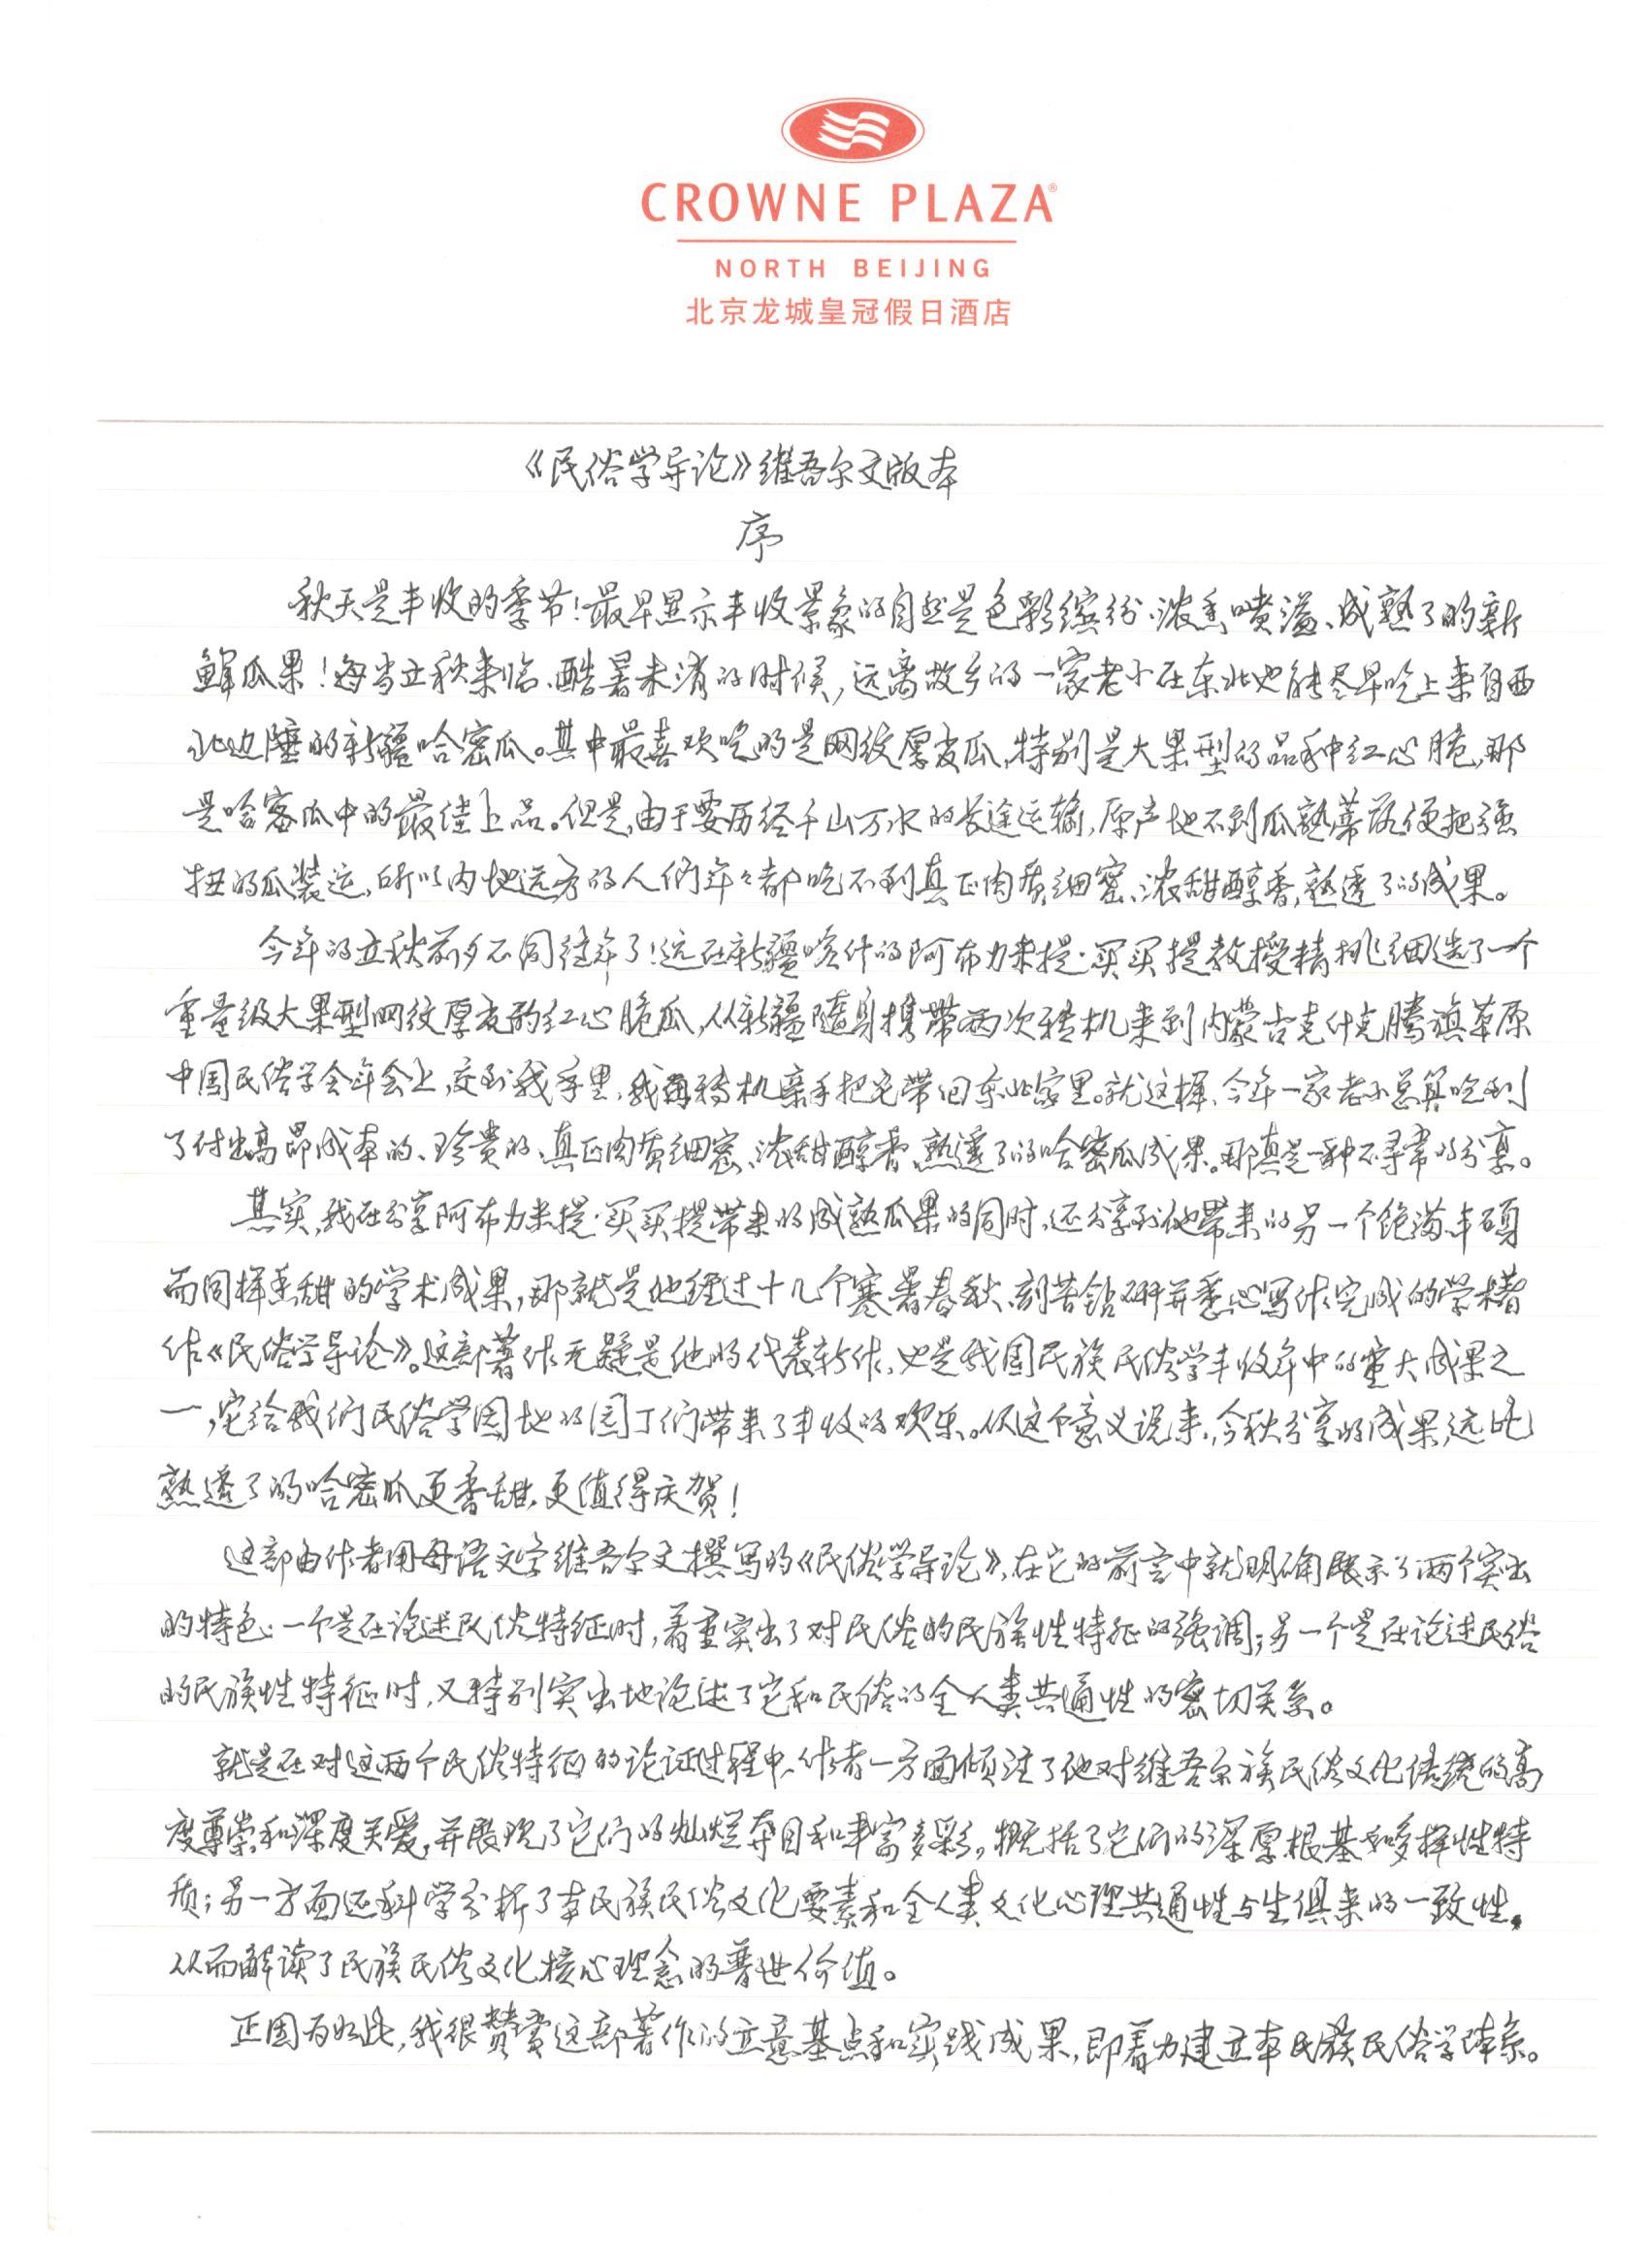 CROWNE PLAZA®
NORTH BEIJING
北京龙城皇冠假日酒店
《民俗学导论》维吾尔文版本
序
秋天是丰收的季节！最早显示丰收景象的自然是色彩缤纷、浓香喷溢、成熟了的新
鲜瓜果！每当立秋来临、酷暑未消的时候，远离故乡的一家老小在东北也能尽早吃上来自西
北边陲的新疆哈密瓜。其中最喜欢吃的是网纹厚皮瓜，特别是大果型的品种红心脆，那
是哈密瓜中的最佳上品。但是，由于要历经千山万水的长途运输，原产地不到瓜熟蒂落便把强
扭的瓜装运，所以内地远方的人们年々都吃不到真正肉质细密、浓甜醇香，熟透了的成果。
今年的立秋前夕不同往年了！远在新疆喀什的阿布力米提·买买提教授精挑细选了一个
重量级大果型网纹厚皮的红心脆瓜，从新疆随身携带两次转机来到内蒙古克什克腾旗草原
中国民俗学会年会上，交到我手里，我再转机亲手把它带回东北家里。就这样，今年一家老小总算吃到
了付出高昂成本的、珍贵的、真正肉质细密、浓甜醇香、熟透了的哈密瓜成果。那真是一种不寻常的分享。
其实，我在分享阿布力米提·买买提带来的成熟瓜果的同时，还分享到他带来的另一个饱满丰硕
而同样香甜的学术成果，那就是他经过十几个寒暑春秋、刻苦钻研并悉心写作完成的学术著
作《民俗学导论》。这部著作无疑是他的代表新作，也是我国民族民俗学丰收年中的重大成果之
一，它给我们民俗学园地的园丁们带来了丰收的欢乐。从这个意义说来，今秋分享的成果，远比
熟透了的哈密瓜更香甜，更值得庆贺！
这部由作者用母语文字维吾尔文撰写的《民俗学导论》，在它的前言中就明确展示了两个突出
的特色：一个是在论述民俗特征时，着重突出了对民俗的民族性特征的强调；另一个是在论述民俗
的民族性特征时，又特别突出地论述了它和民俗的全人类共通性的密切关系。
就是在对这两个民俗特征的论证过程中，作者一方面倾注了他对维吾尔族民俗文化传统的高
度尊崇和深度关爱，并展现了它们的灿烂夺目和丰富多彩，概括了它们的深厚根基和多样性特
质；另一方面还科学分析了本民族民俗文化要素和全人类文化心理共通性与生俱来的一致性，
从而解读了民族民俗文化核心理念的普世价值。
正因为如此，我很赞赏这部著作的立意基点和实践成果，即着力建立本民族民俗学体系。